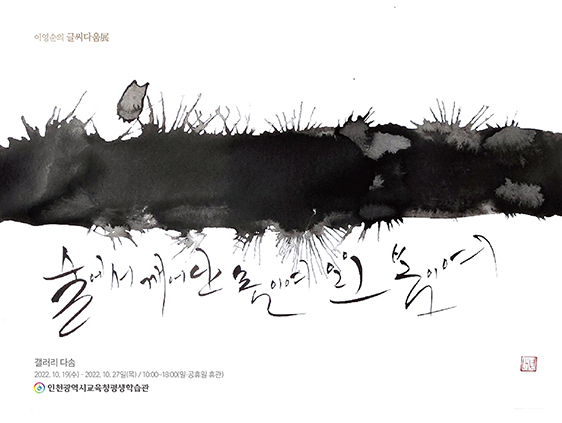 이영순의 글씨다움展
술에서 깨어난 몸이여 오 봄이여
갤러리 다솜
2022. 10. 19(수) - 2022. 10. 27일(목) / 10:00~18:00(일·공휴일 휴관)
인천광역시교육청평생학습관